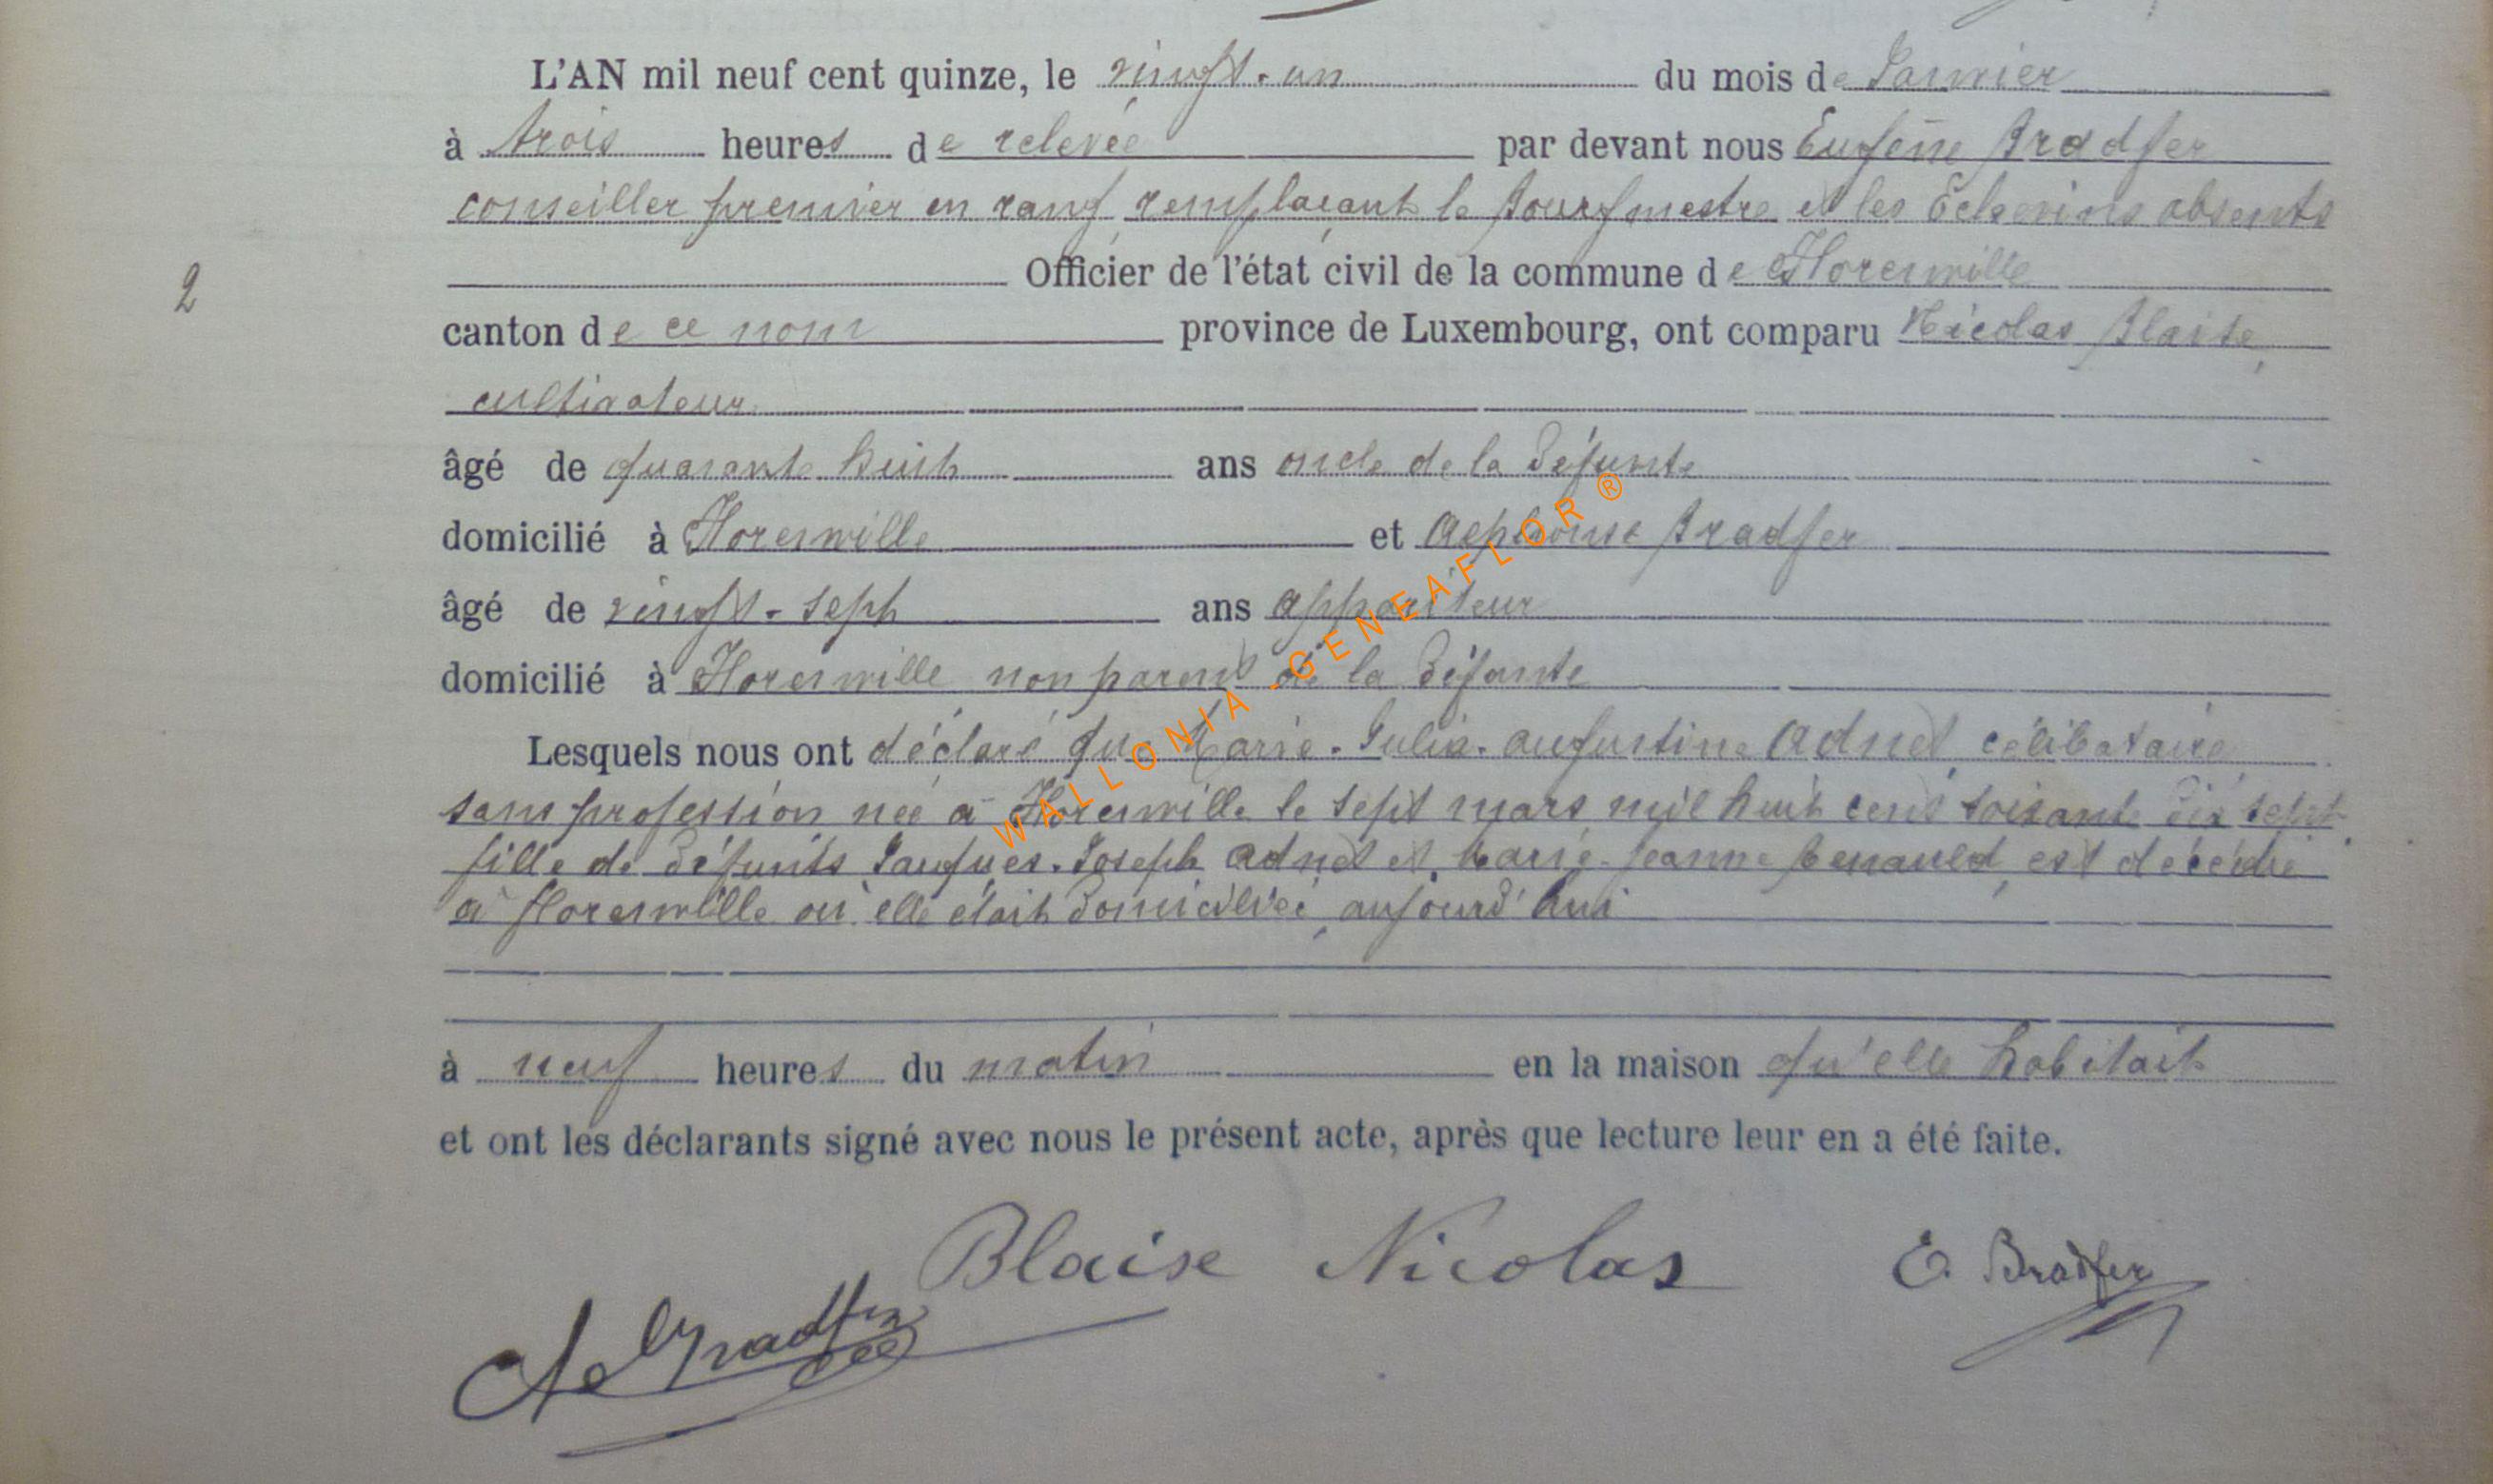 L'AN mil neuf cent quinze, le vingt-un du mois de Janvier
à trois heures de relevée par devant nous Eugène Bradfer
conseiller premier en rang remplaçant le Bourgmestre et les Echevins absents
2 Officier de l'état civil de la commune de Florenville
canton de ce nom province de Luxembourg, ont comparu Nicolas Blaise,
cultivateur
âgé de quarante huit ans oncle de la défunte
domicilié à Florenville et Alphonse Bradfer
âgé de vingt-sept ans appariteur
domicilié à Florenville non parent de la défunte
Lesquels nous ont déclaré que Marie-Julie-Augustine Adnet, célibataire
sans profession née à Florenville le sept mars mil huit cent soixante dix sept
fille de défunts Jacques-Joseph Adnet et Marie-Jeanne Renauld, est décédée
à Florenville où elle était domiciliée, aujourd'hui
à neuf heures du matin en la maison qu'elle habitait
et ont les déclarants signé avec nous le présent acte, après que lecture leur en a été faite.
Blaise Nicolas E. Bradfer
A Bradfer
WALLONIA-GENEAFLOR ®